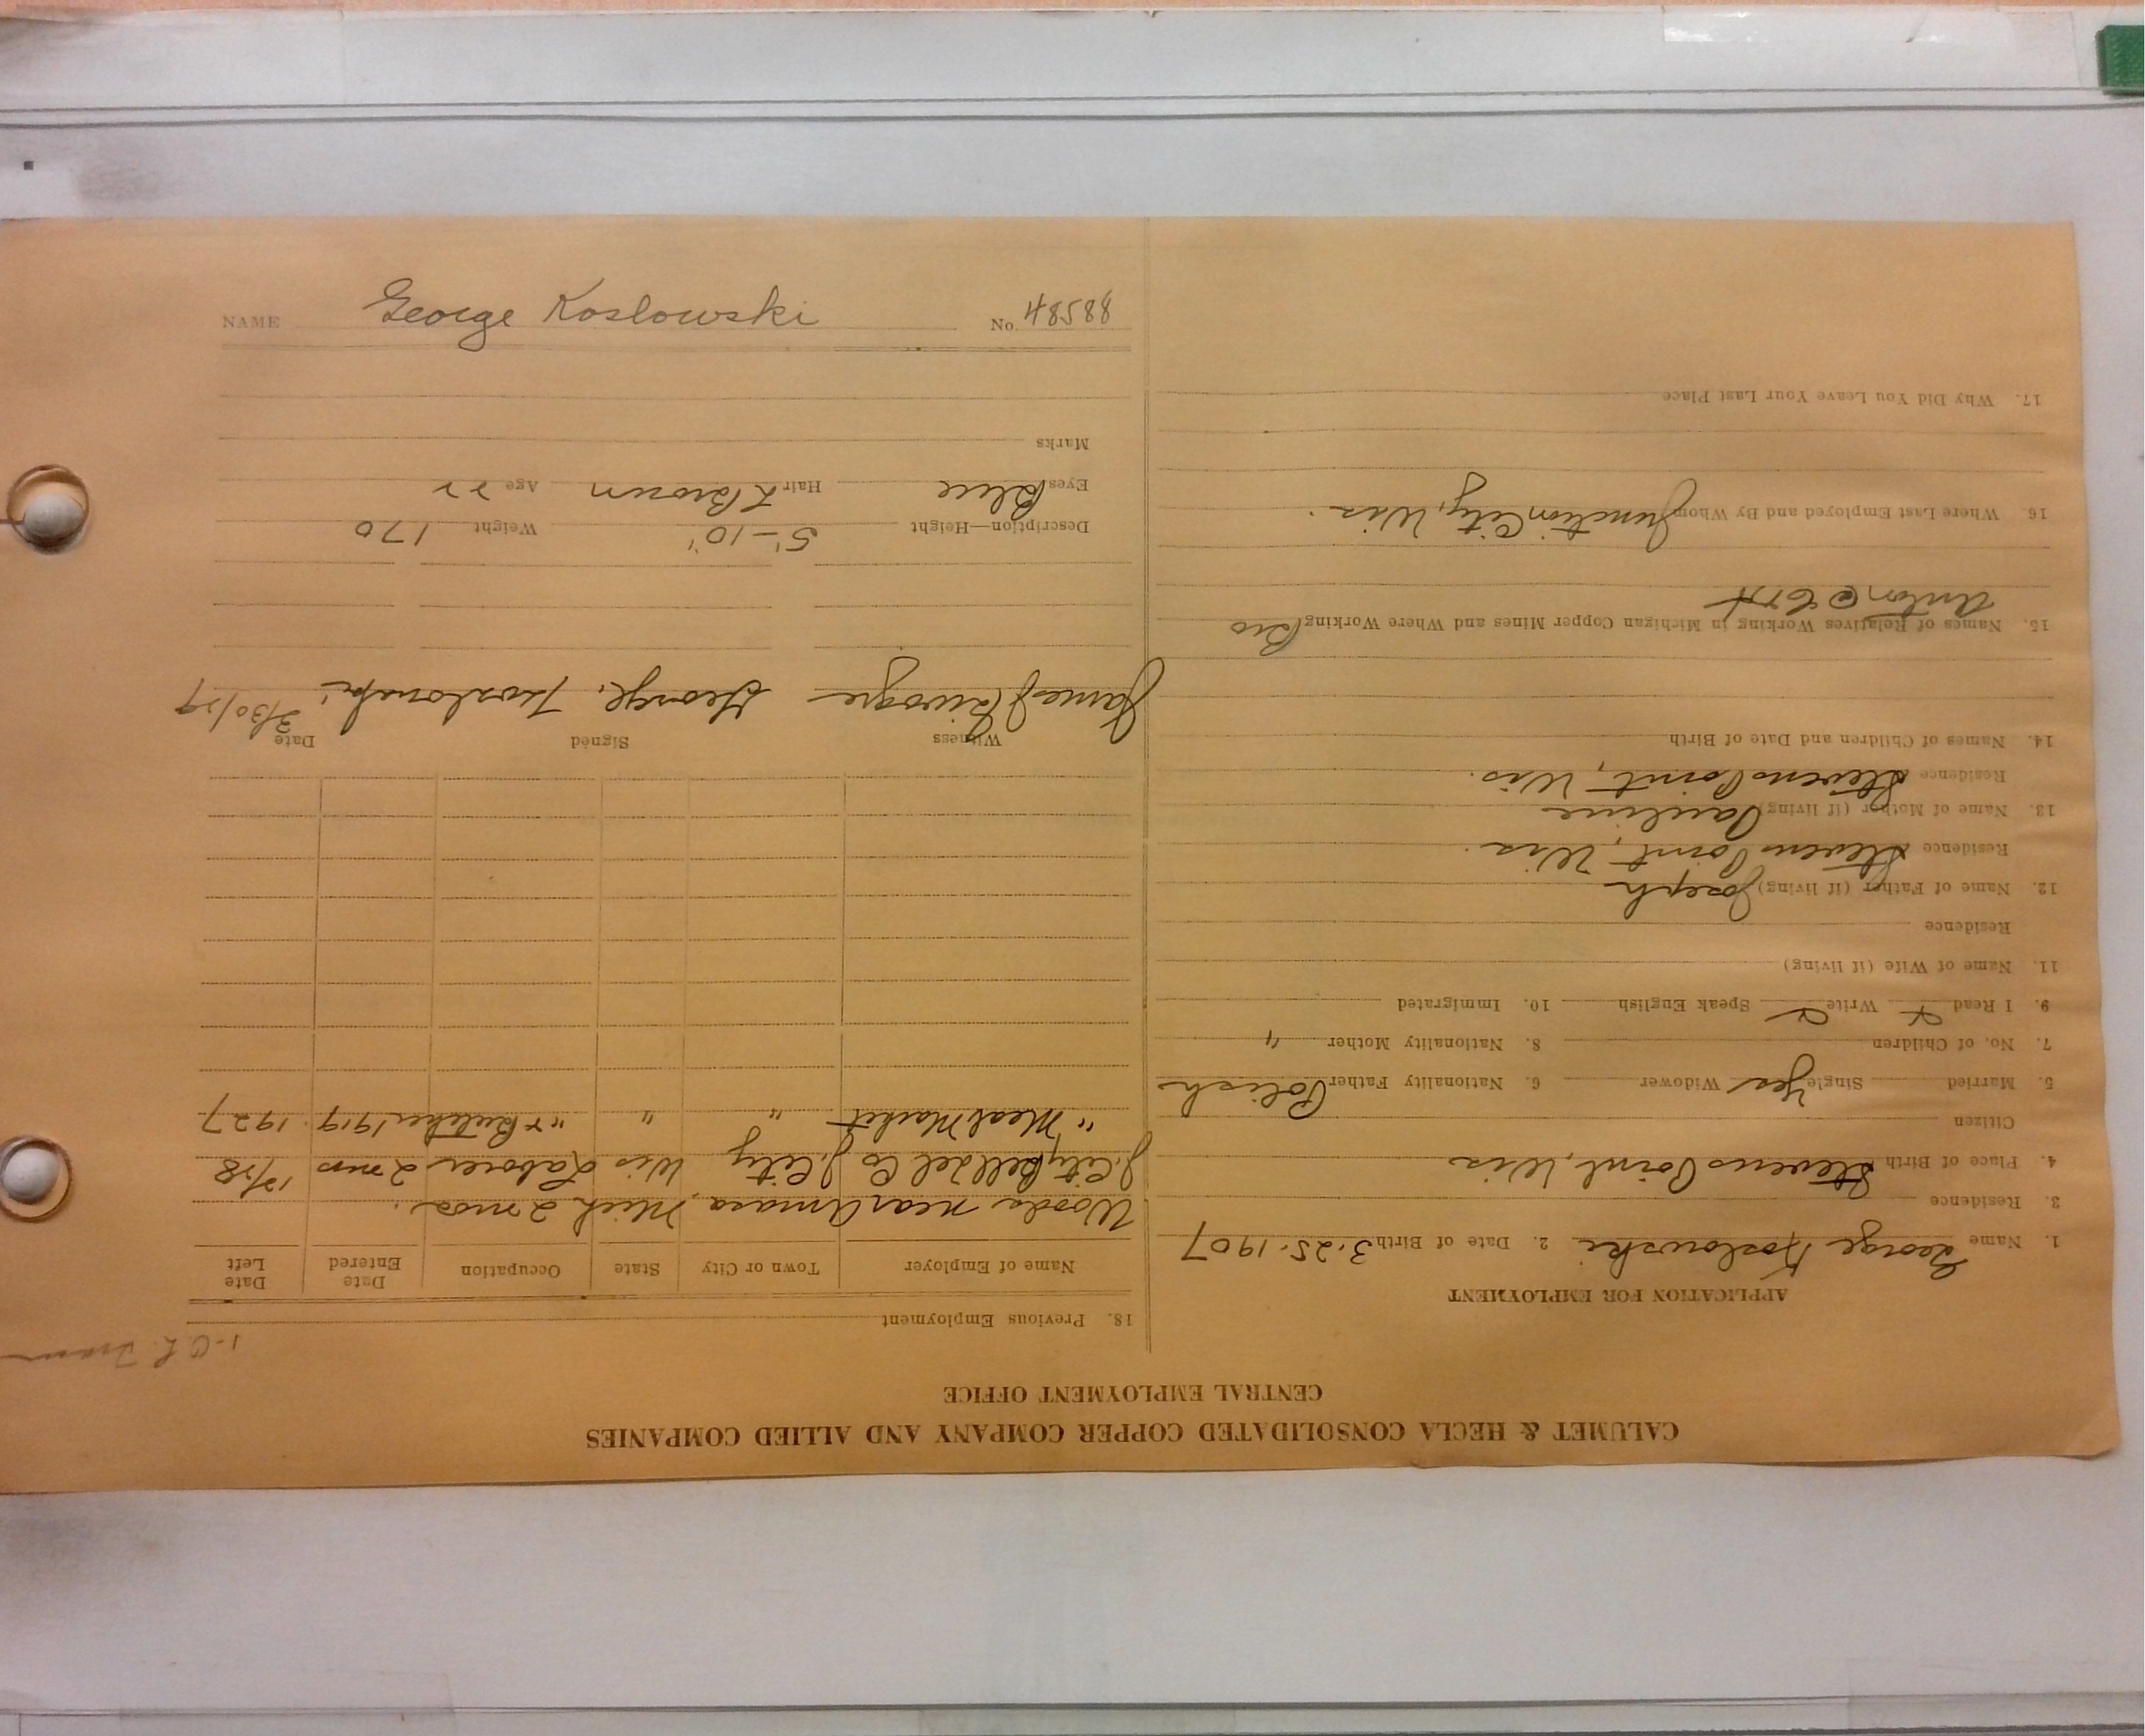 NAME George Koslowski No. 48588
CALUMET & HECLA CONSOLIDATED COPPER COMPANY AND ALLIED COMPANIES
CENTRAL EMPLOYMENT OFFICE
APPLICATION FOR EMPLOYMENT
1. Name George Koslowski 2. Date of Birth 3.25.1907
3. Residence
4. Place of Birth Stevens Point, Wis
Citizen
5. Married Single Yes Widower 6. Nationality Father Polish
7. No. of Children 8. Nationality Mother "
9. I Read Write Speak English 10. Immigrated
11. Name of Wife (if living)
Residence
12. Name of Father (if living) Joseph
Residence Stevens Point, Wis.
13. Name of Mother (if living) Pauline
Residence Stevens Point, Wis.
14. Names of Children and Date of Birth
15. Names of Relatives Working in Michigan Copper Mines and Where Working Bro
Anton @
16. Where Last Employed and By Whom Junction City, Wis.
17. Why Did You Leave Your Last Place
1-C L. Tram
18. Previous Employment
Name of Employer Town or City State Occupation Date Entered Date Left
Woods near Amasa, Mich 2 mos.
J. City Bell Tel Co J. City Wis Laborer 2 mos 12/28
" Meat Market " " " Butcher 1919. 1927
Witness Signed Date
James J George. Koslowski 3/30/29
Description—Height 5'-10" Weight 170
Eyes Blue Hair L Brown Age 22
Marks